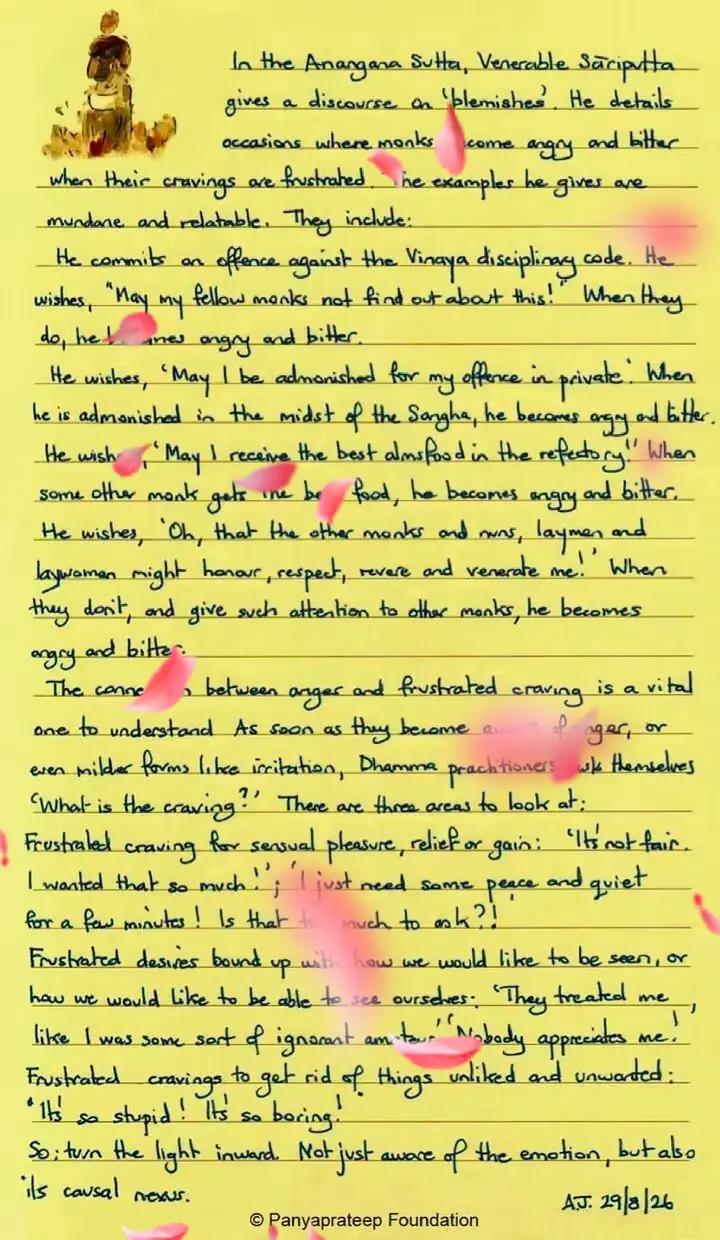 In the Anangana Sutta, Venerable Sāriputta
gives a discourse on 'blemishes'. He details
occasions where monks come angry and bitter
when their cravings are frustrated. The examples he gives are
mundane and relatable. They include:
He commits an offence against the Vinaya disciplinary code. He
wishes, "May my fellow monks not find out about this!" When they
do, he angry and bitter.
He wishes, 'May I be admonished for my offence in private'. When
he is admonished in the midst of the Sangha, he becomes angry and bitter.
He wish , 'May I receive the best almsfood in the refectory!' When
some other monk gets the be food, he becomes angry and bitter.
He wishes, 'Oh, that the other monks and nuns, laymen and
laywomen might honour, respect, revere and venerate me!' When
they don't, and give such attention to other monks, he becomes
angry and bitter.
The conne n between anger and frustrated craving is a vital
one to understand As soon as they become aware of anger, or
even milder forms like irritation, Dhamma practitioners ask themselves
'What is the craving?' There are three areas to look at:
Frustrated craving for sensual pleasure, relief or gain: 'It's not fair.
I wanted that so much!'; 'I just need some peace and quiet
for a few minutes! Is that to much to ask?!'
Frustrated desires bound up with how we would like to be seen, or
how we would like to be able to see ourselves: 'They treated me
like I was some sort of ignorant amateur' 'Nobody appreciates me!'
Frustrated cravings to get rid of things unliked and unwanted:
'It's so stupid! It's so boring!'
So; turn the light inward. Not just aware of the emotion, but also
its causal nexus.
A.J. 29/8/26
© Panyaprateep Foundation